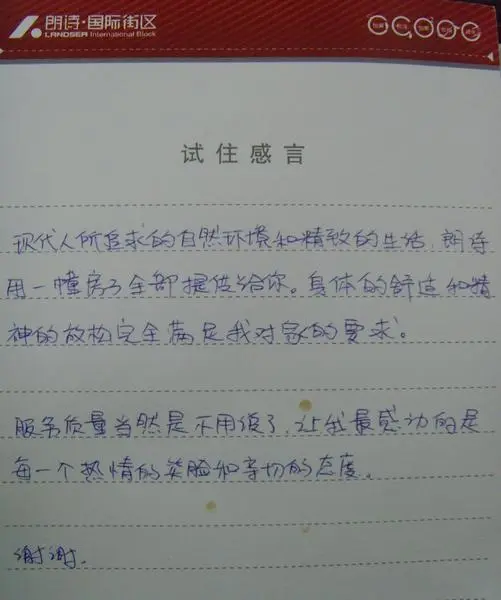 朗诗·国际街区
LANDSEA International Block
试住感言
现代人所追求的自然环境和精致的生活,朗诗
用一幢房子全部提供给你。身体的舒适和精
神的放松完全满足我对家的要求。
服务质量当然是不用说了,让我最感动的是
每一个热情的笑脸和亲切的态度。
谢谢.